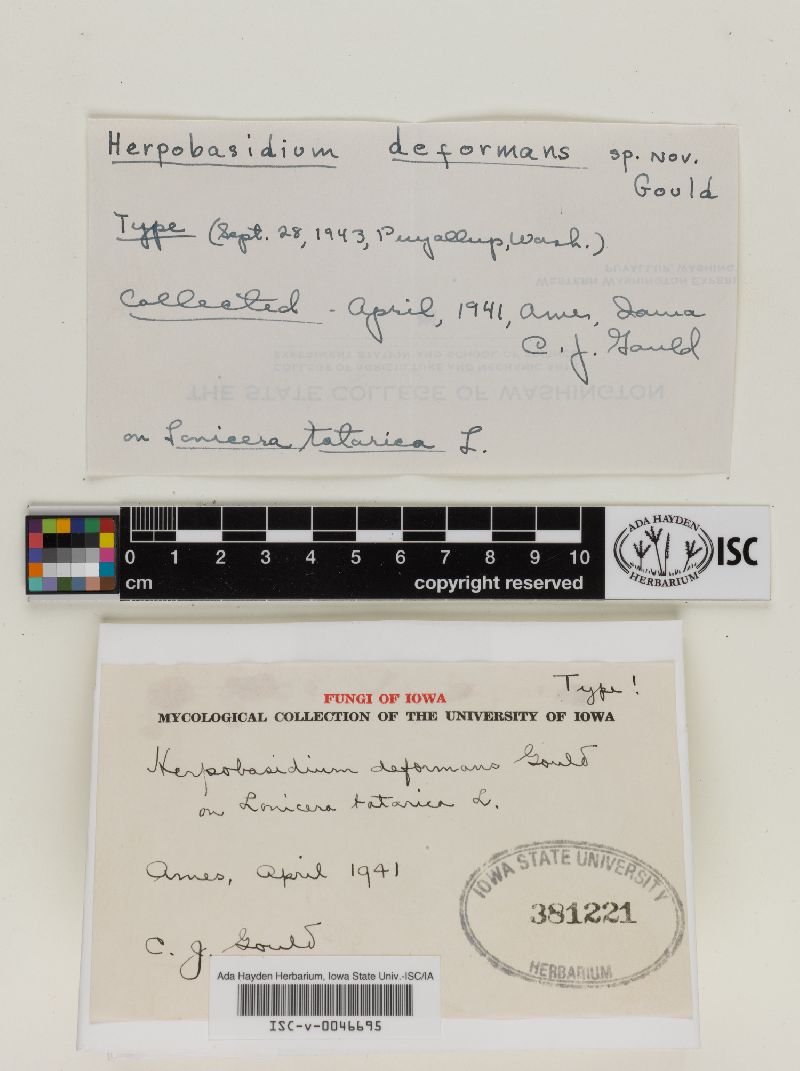 Herpobasidium deformans sp. nov.
Gould
Type (Sept. 28, 1943, Puyallup, Wash.)
PUYALLUP, WASHING
WESTERN WASHINGTON EXPERI
Collected - April, 1941, Ames, Iowa
C. J. Gould
EXPERIMENT STATION AND SCHOOL OF
COLLEGE OF AGRICULTURE AND MECHANIC ARTS
THE STATE COLLEGE OF WASHINGTON
on Lonicera tatarica L.
0 1 2 3 4 5 6 7 8 9 10
cm copyright reserved
ADA HAYDEN
HERBARIUM
ISC
Type!
FUNGI OF IOWA
MYCOLOGICAL COLLECTION OF THE UNIVERSITY OF IOWA
Herpobasidium deformans Gould
on Lonicera tatarica L.
Ames, April 1941
IOWA STATE UNIVERSITY
381221
HERBARIUM
C. J. Gould
Ada Hayden Herbarium, Iowa State Univ.-ISC/IA
ISC-v-0046695